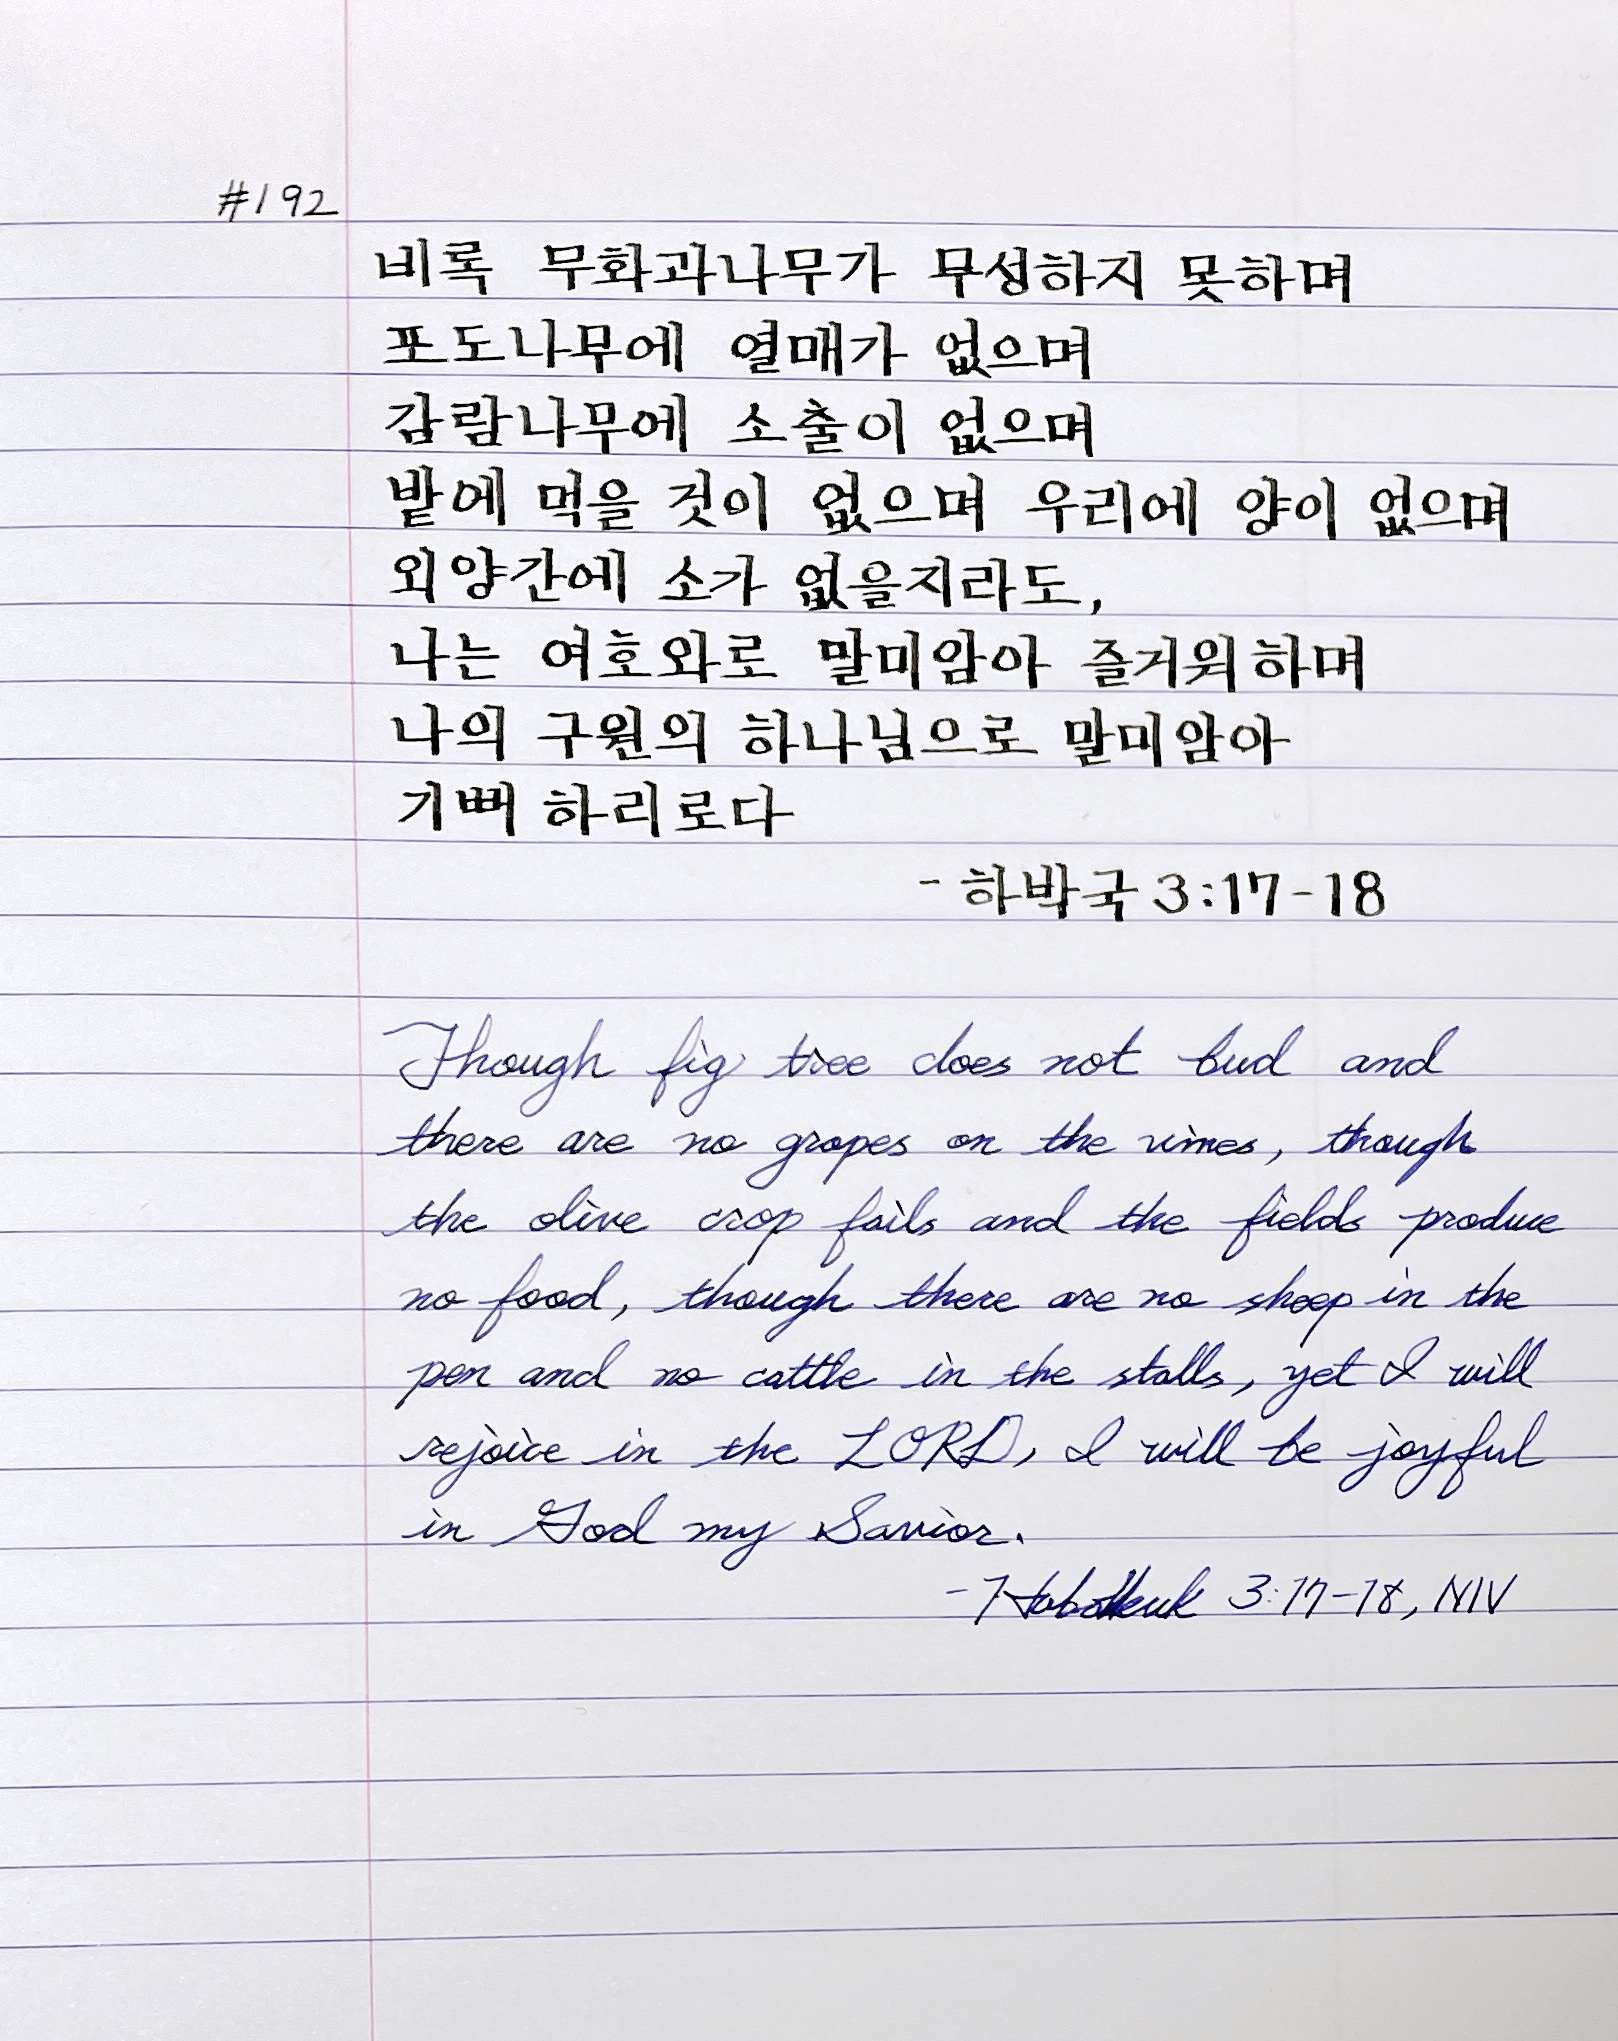 #192
비록 무화과나무가 무성하지 못하며
포도나무에 열매가 없으며
감람나무에 소출이 없으며
밭에 먹을 것이 없으며 우리에 양이 없으며
외양간에 소가 없을지라도,
나는 여호와로 말미암아 즐거워하며
나의 구원의 하나님으로 말미암아
기뻐 하리로다
- 하박국 3:17-18
Though fig tree does not bud and
there are no grapes on the vines, though
the olive crop fails and the fields produce
no food, though there are no sheep in the
pen and no cattle in the stalls, yet I will
rejoice in the LORD, I will be joyful
in God my Savior.
- Habakkuk 3:17-18, NIV